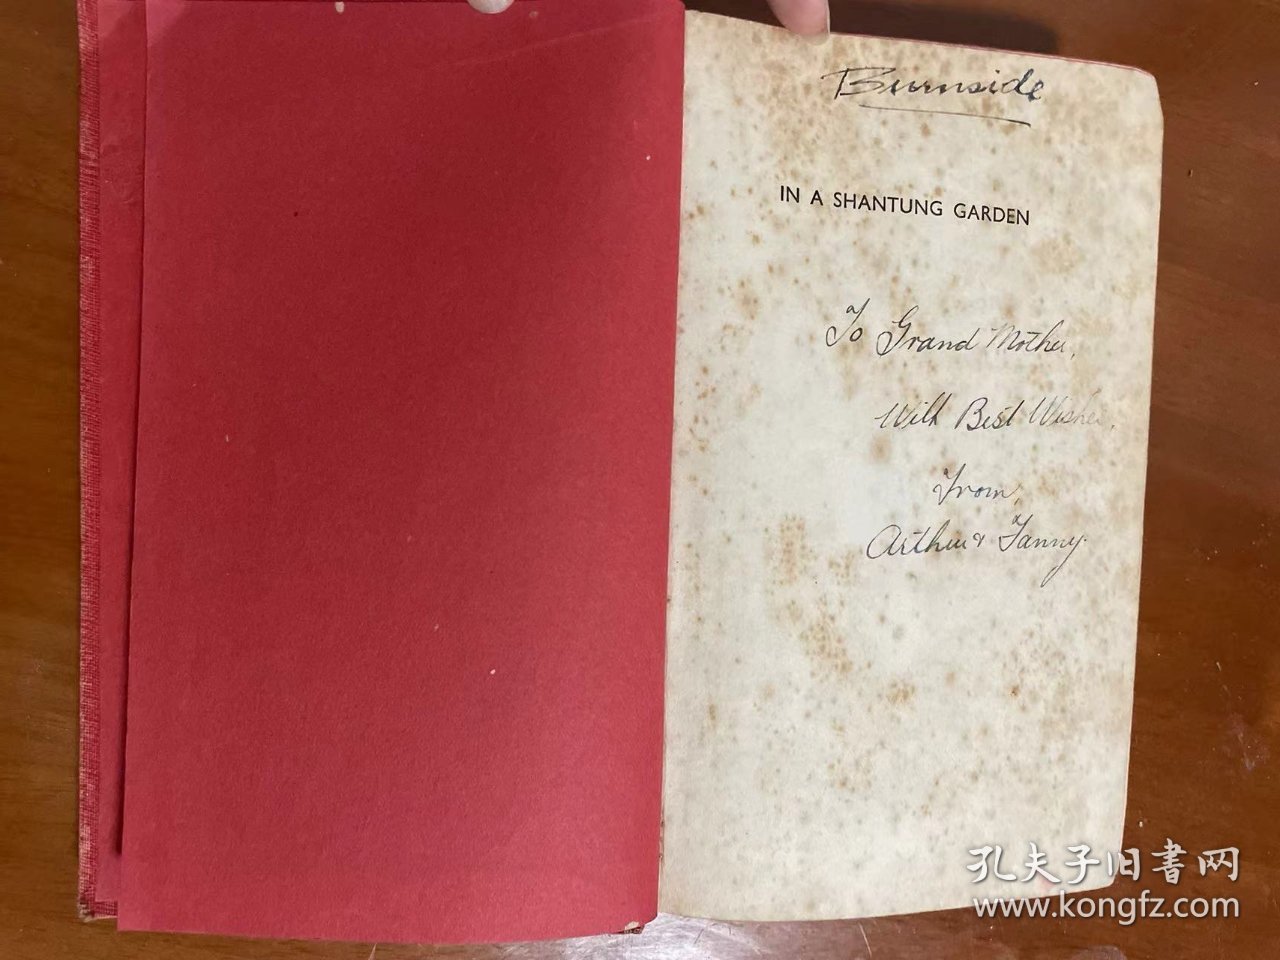 Burnside
IN A SHANTUNG GARDEN
To Grand Mother,
With Best Wishes,
From,
Arthur & Fanny.
孔夫子旧書网
www.kongfz.com